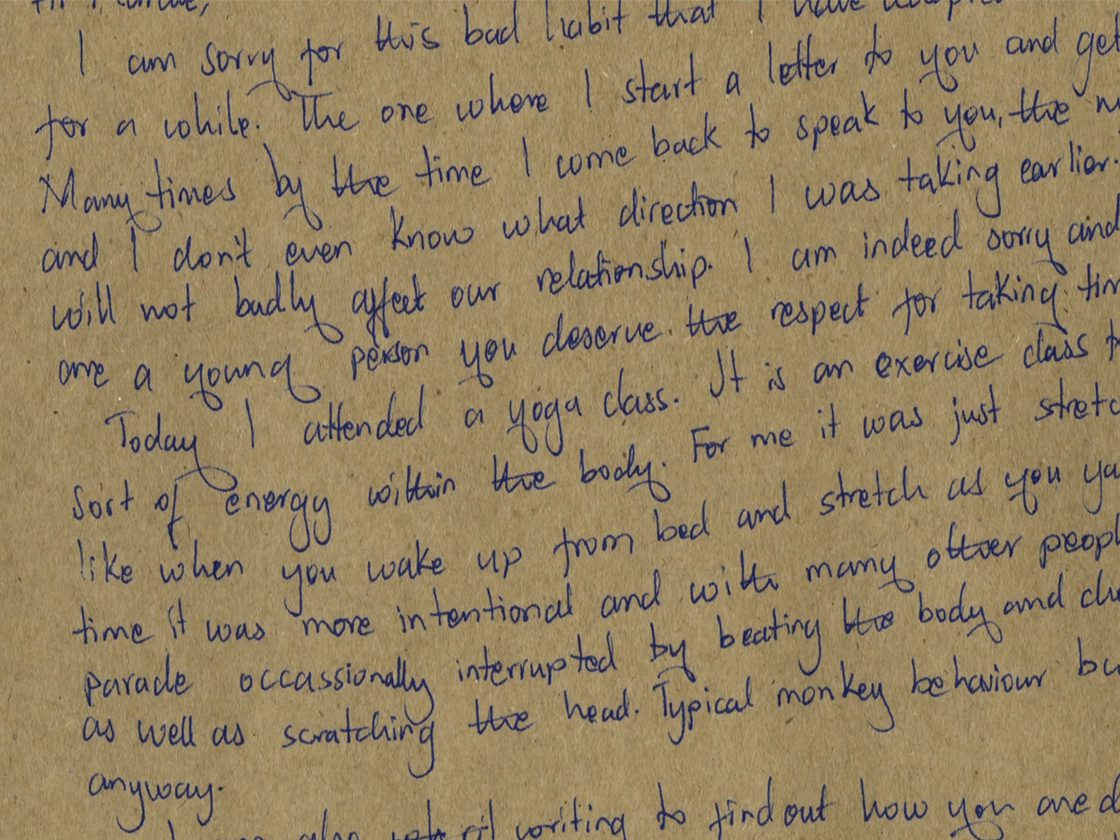 I am sorry for this bad habit that I have
for a while. The one where I start a letter to you and get
Many times by the time I come back to speak to you, the
and I don't even know what direction I was taking earlier.
will not badly affect our relationship. I am indeed sorry and
are a young person you deserve the respect for taking
Today I attended a yoga class. It is an exercise class
sort of energy within the body. For me it was just
like when you wake up from bed and stretch as you
time it was more intentional and with many other
parade occassionally interrupted by beating the body and
as well as scratching the head. Typical monkey behaviour
anyway.
also writing to find out how you are